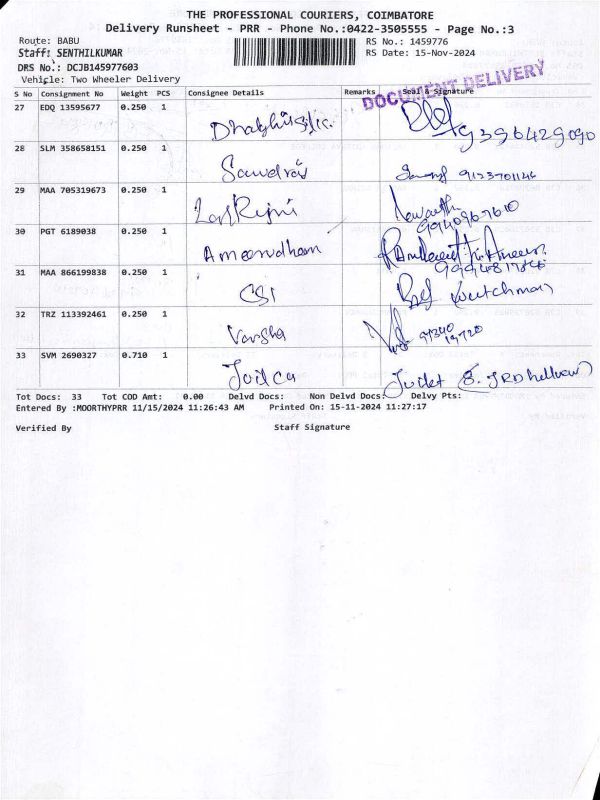 THE PROFESSIONAL COURIERS, COIMBATORE
Delivery Runsheet - PRR - Phone No.:0422-3505555 - Page No.:3
Route: BABU
RS No.: 1459776
Staff: SENTHILKUMAR
RS Date: 15-Nov-2024
DRS No.: DCJB145977603
Vehicle: Two Wheeler Delivery
DOCUMENT DELIVERY
S No Consignment No Weight PCS Consignee Details Remarks Seal & Signature
27 EDQ 13595677 0.250 1
28 SLM 358658151 0.250 1
9123701146
29 MAA 705319673 0.250 1
30 PGT 6189038 0.250 1 Ameerudham
31 MAA 866199838 0.250 1 CSI
32 TRZ 113392461 0.250 1 Varsha
97340
19720
33 SVM 2690327 0.710 1
Tot Docs: 33 Tot COD Amt: 0.00 Delvd Docs: Non Delvd Docs: Delvy Pts:
Entered By :MOORTHYPRR 11/15/2024 11:26:43 AM Printed On: 15-11-2024 11:27:17
Verified By Staff Signature